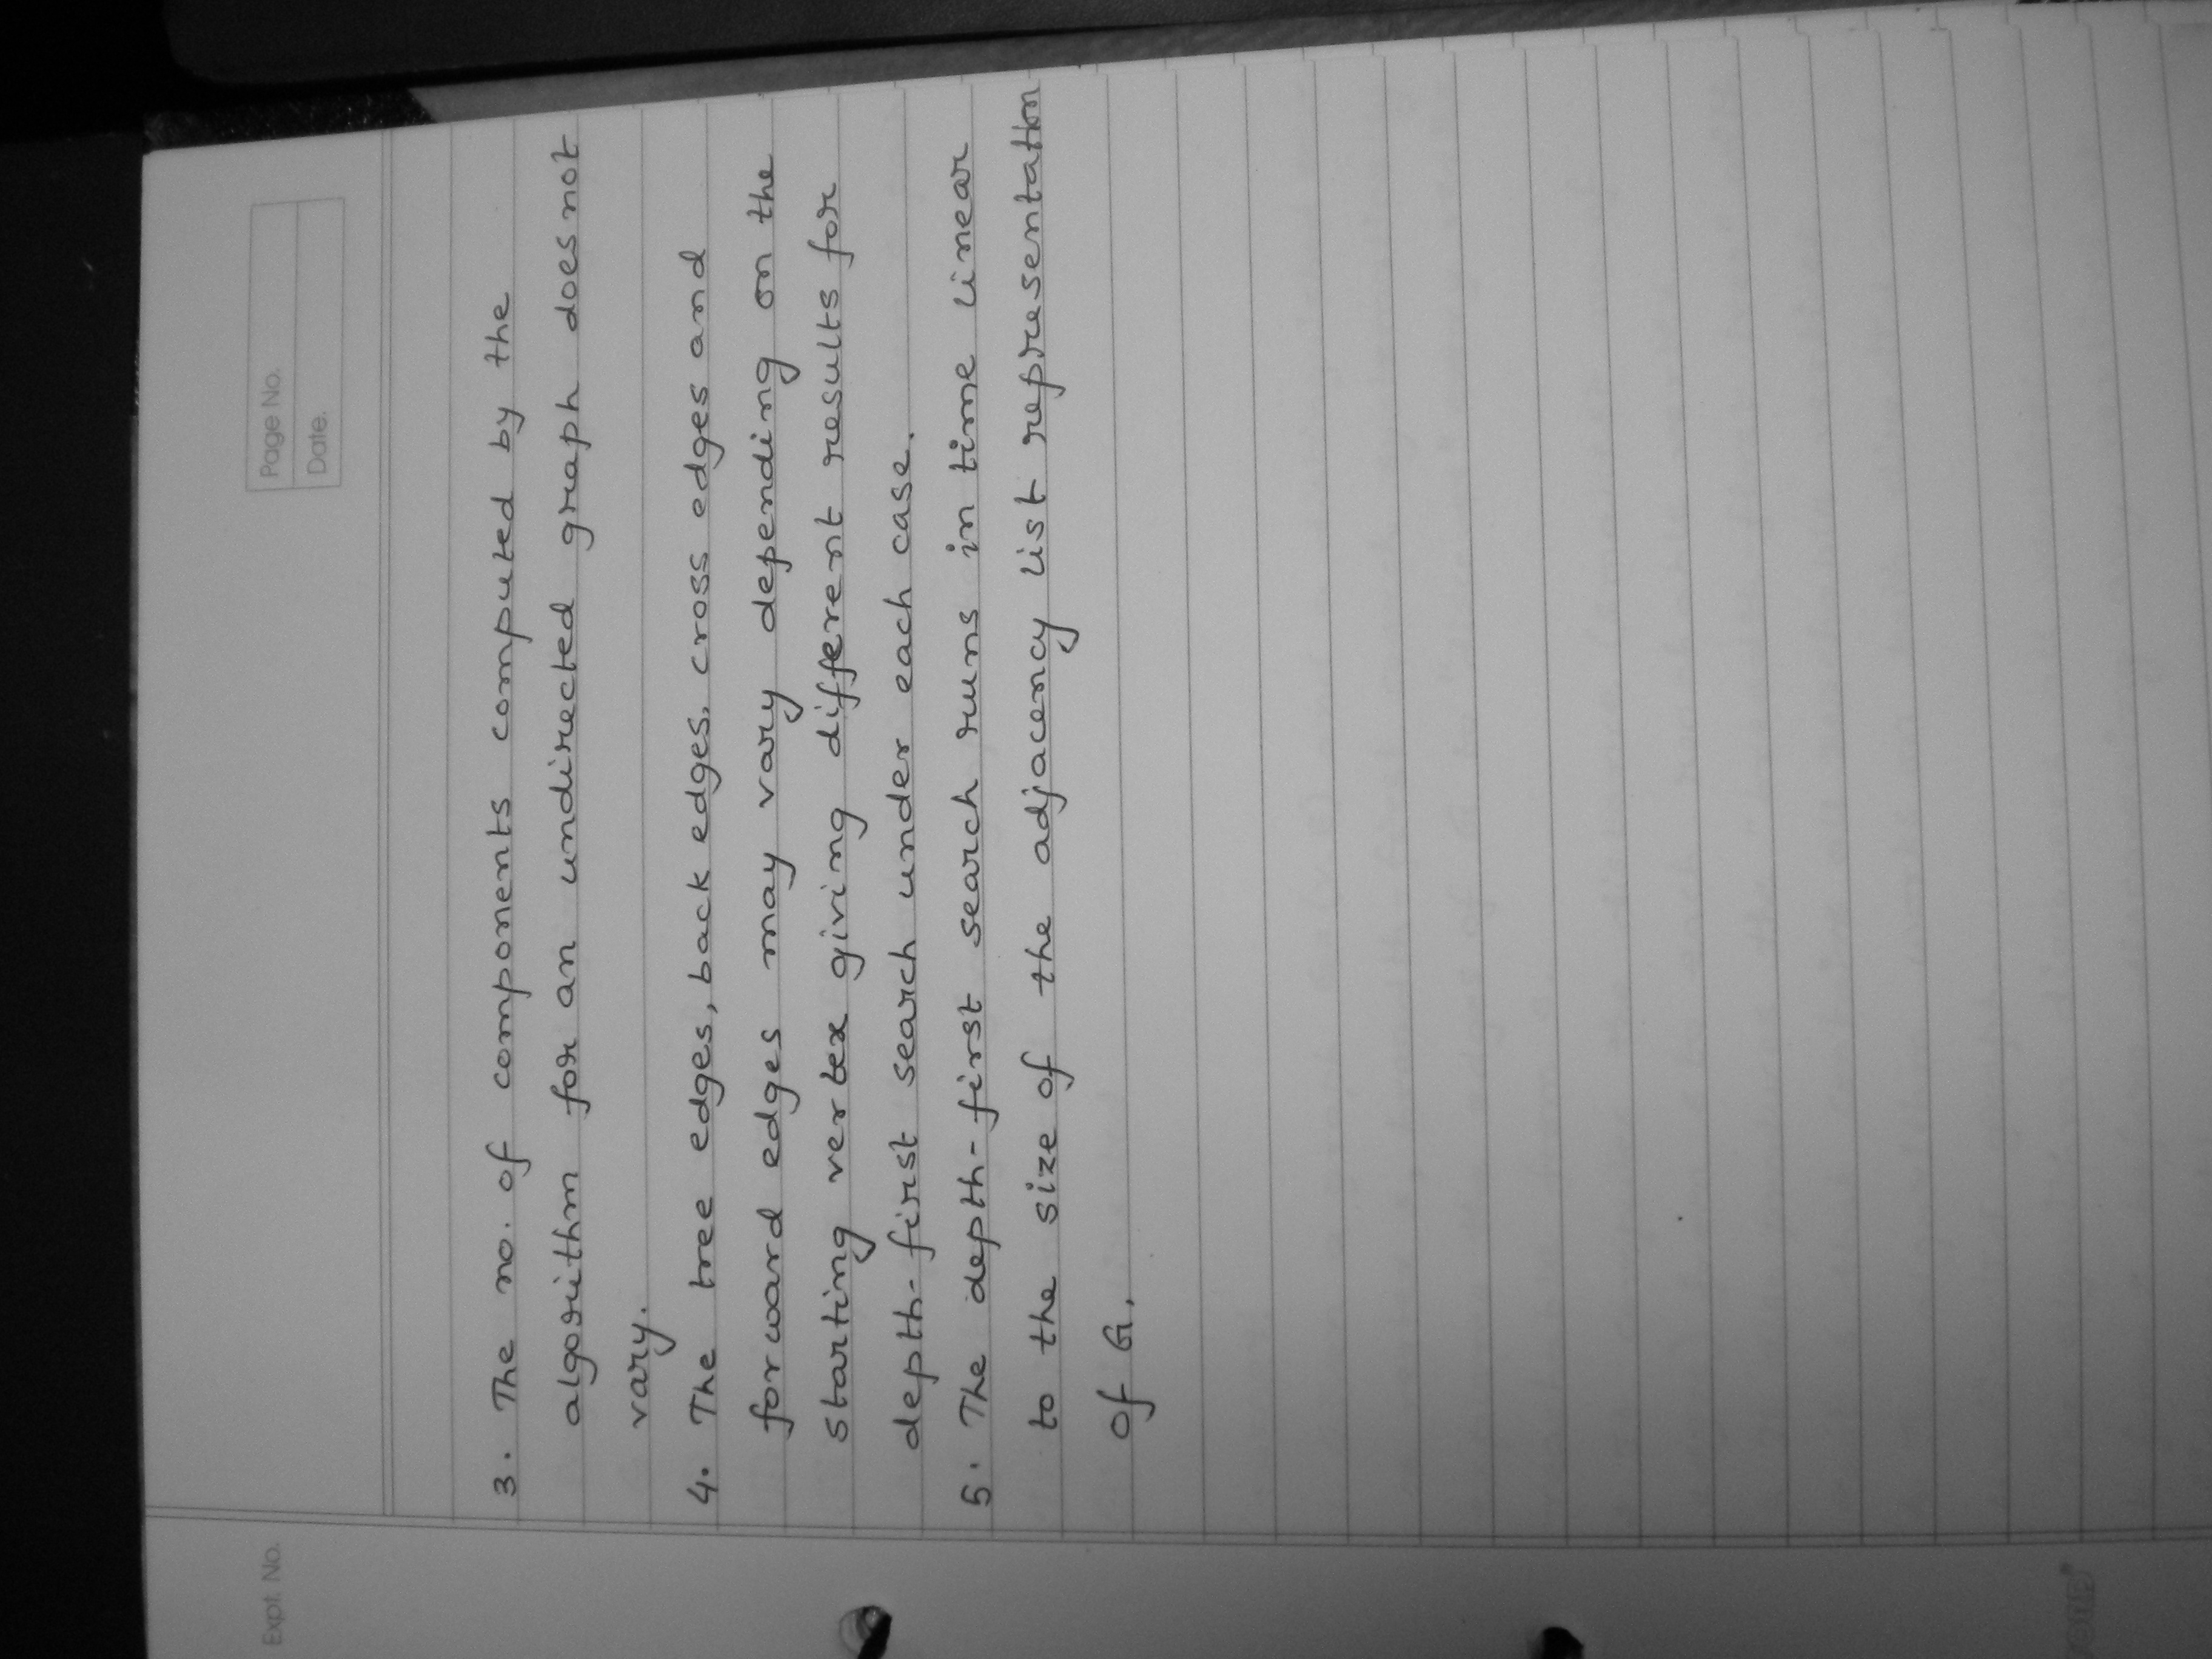 Expt. No.
Page No.
Date.
3. The no. of components computed by the
algorithm for an undirected graph does not
vary.
4. The tree edges, back edges, cross edges and
forward edges may vary depending on the
starting vertex giving different results for
depth-first search under each case.
5. The depth-first search runs in time linear
to the size of the adjacency list representation
of G.